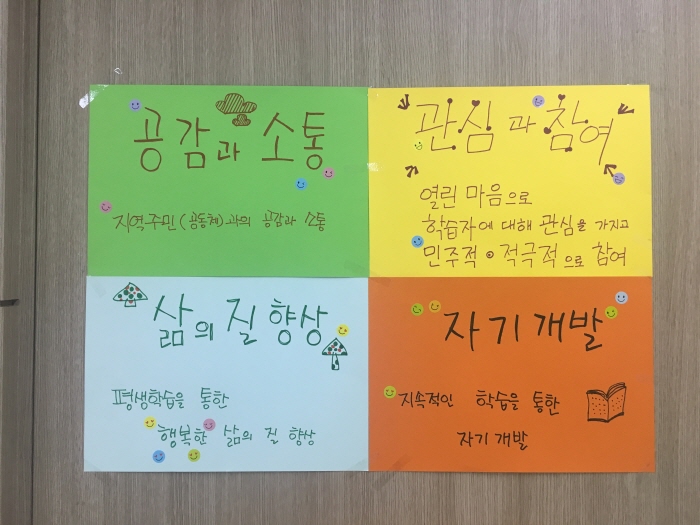 공감과 소통
지역주민(공동체)과의 공감과 소통
관심과 참여
열린 마음으로
학습자에 대해 관심을 가지고
민주적 • 적극적으로 참여
삶의 질 향상
평생학습을 통한
행복한 삶의 질 향상
자기개발
지속적인 학습을 통한
자기개발